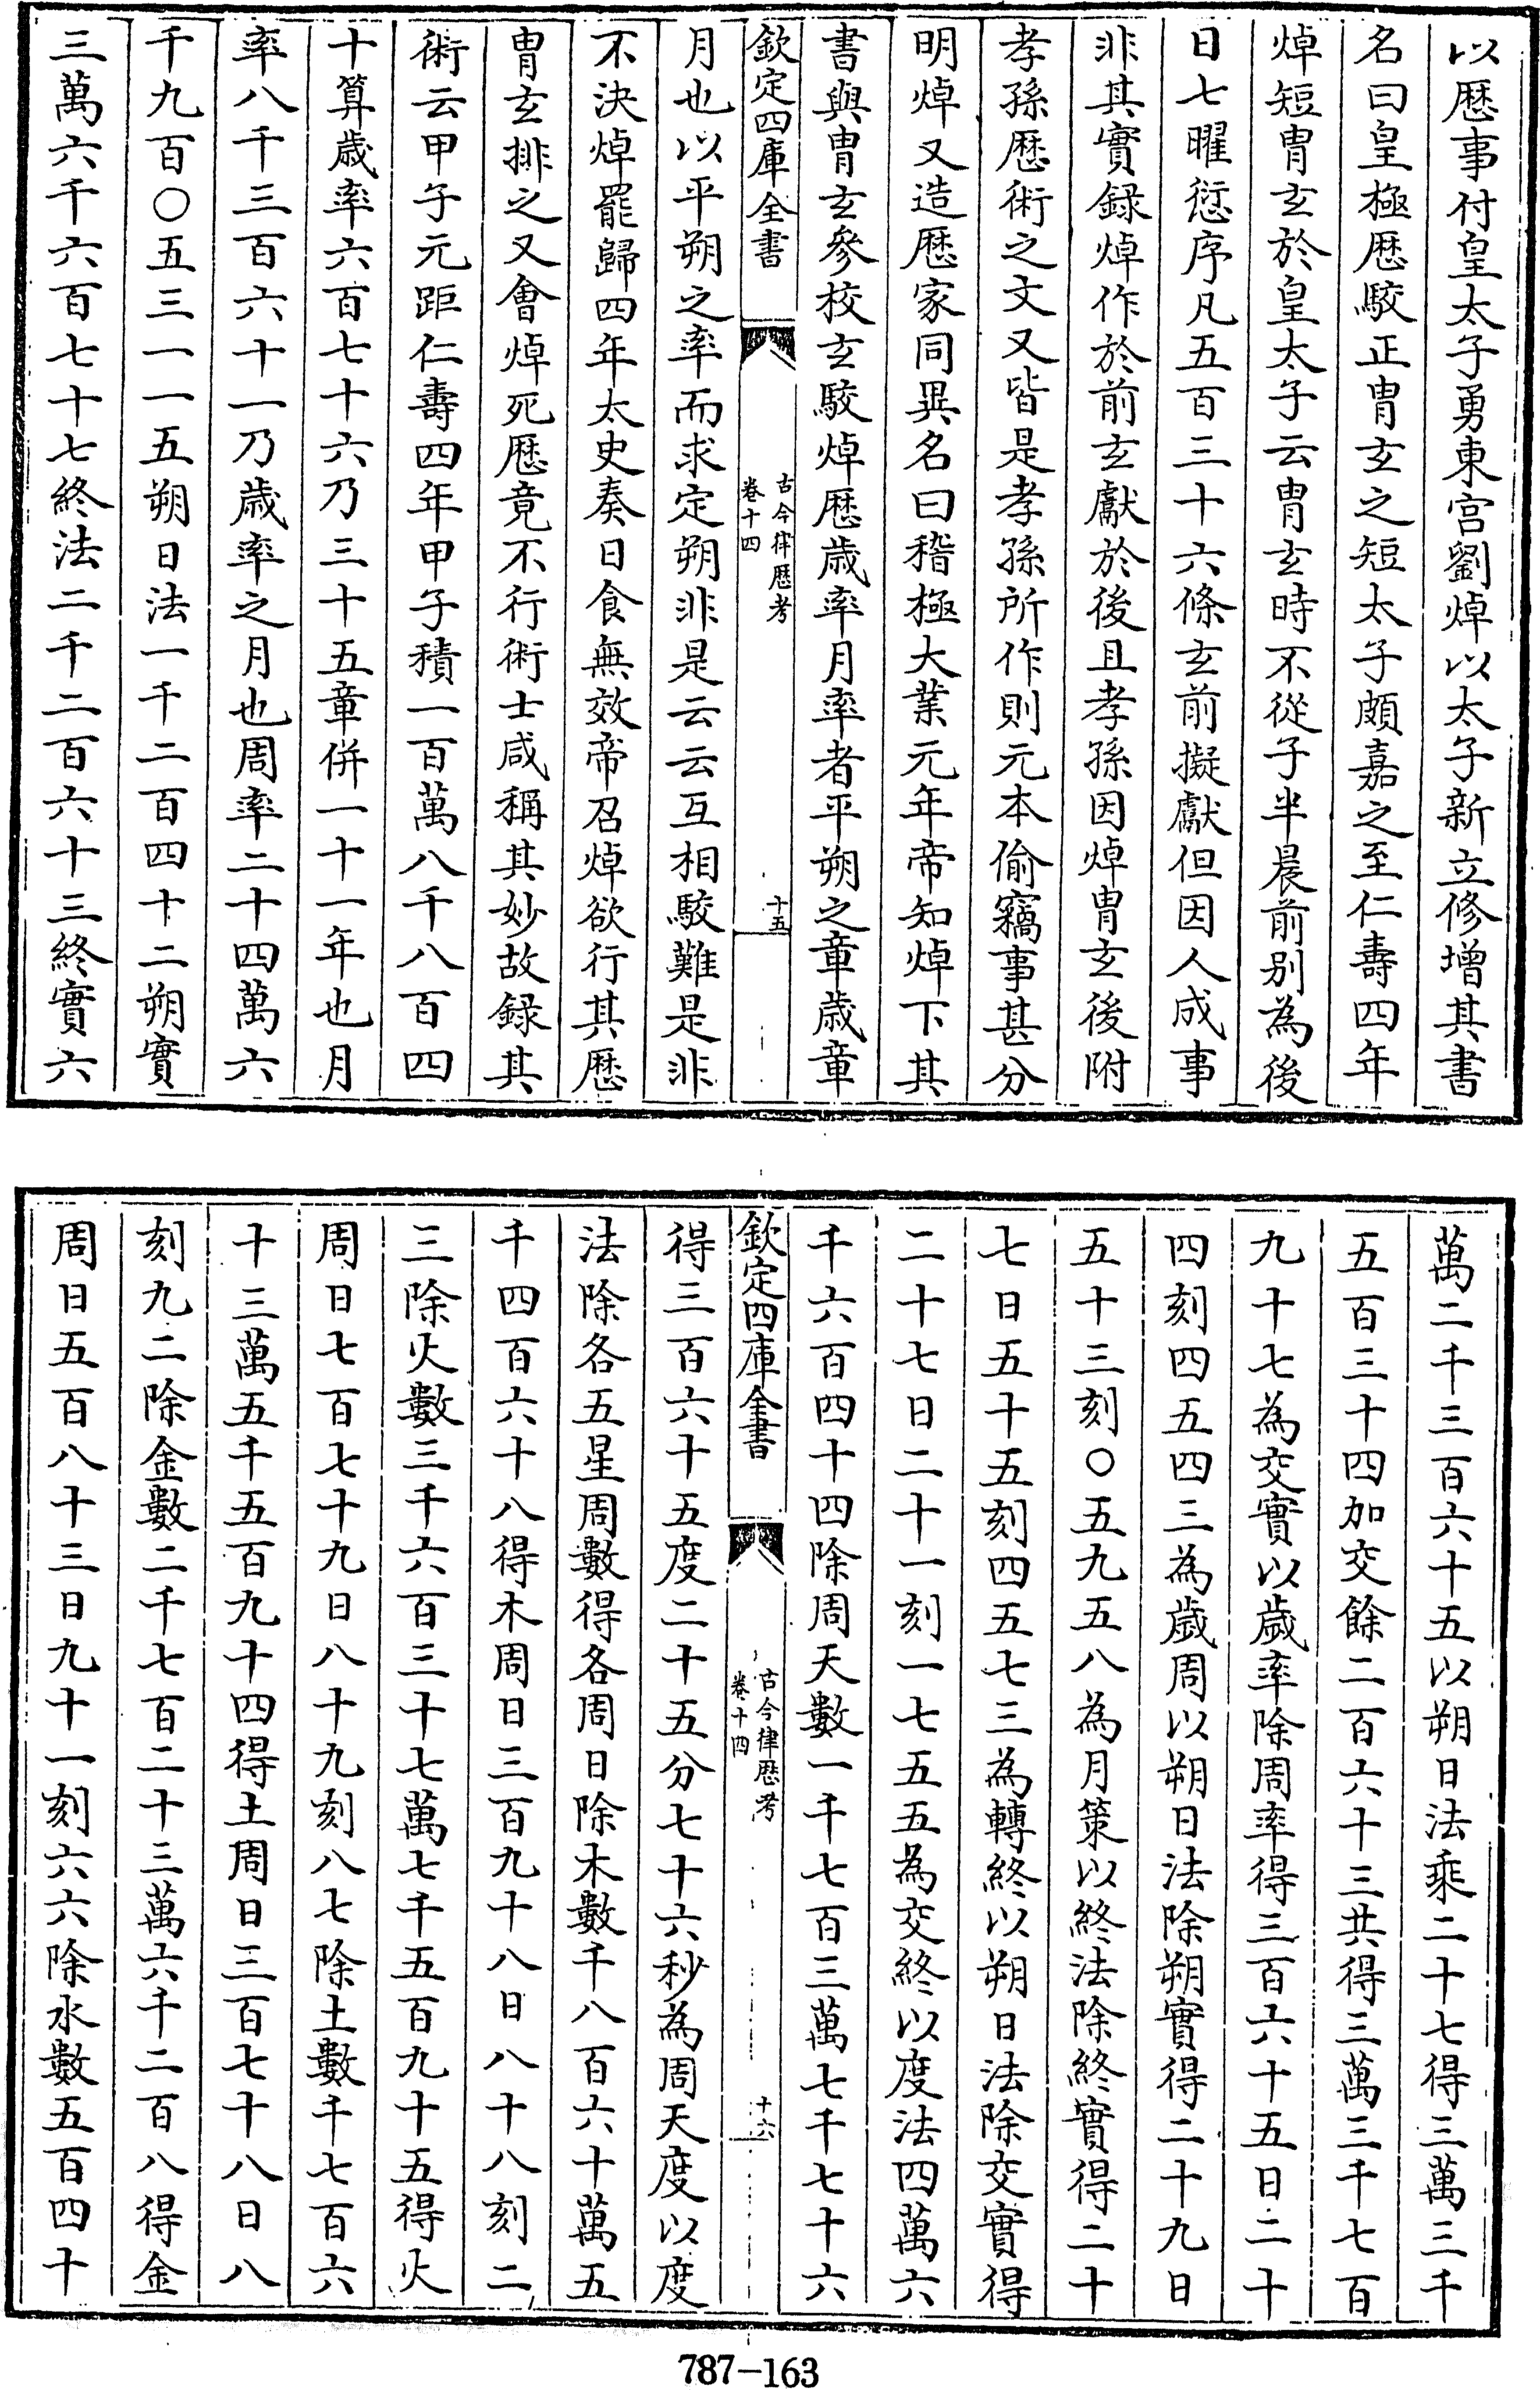 以厯事付皇太子勇東宫劉焯以太子新立修增其書
名曰皇極厯駮正胄玄之短太子頗嘉之至仁壽四年
焯短胄玄於皇太子云胄玄時不從子半晨前别為後
日七曜愆序凡五百三十六條玄前擬獻但因人成事
非其實録焯作於前玄獻於後且孝孫因焯胄玄後附
孝孫厯術之文又皆是孝孫所作則元本偷竊事甚分
明焯又造厯家同異名曰稽極大業元年帝知焯下其
書與胄玄參校玄駮焯厯歳率月率者平朔之章歳章
欽定四庫全書
古今律厯考
卷十四
十五
月也以平朔之率而求定朔非是云云互相駮難是非
不決焯罷歸四年太史奏日食無效帝召焯欲行其厯
胄玄排之又會焯死厯竟不行術士咸稱其妙故録其
術云甲子元距仁壽四年甲子積一百萬八千八百四
十算歳率六百七十六乃三十五章併一十一年也月
率八千三百六十一乃歳率之月也周率二十四萬六
千九百〇五三一一五朔日法一千二百四十二朔實
三萬六千六百七十七終法二千二百六十三終實六
萬二千三百六十五以朔日法乘二十七得三萬三千
五百三十四加交餘二百六十三共得三萬三千七百
九十七為交實以歲率除周率得三百六十五日二十
四刻四五四三為歳周以朔日法除朔實得二十九日
五十三刻〇五九五八為月策以終法除終實得二十
七日五十五刻四五七三為轉終以朔日法除交實得
二十七日二十一刻一七五五為交終以度法四萬六
千六百四十四除周天數一千七百三萬七千七十六
欽定四庫全書
古今律厯考
卷十四
十六
得三百六十五度二十五分七十六秒為周天度以度
法除各五星周數得各周日除木數千八百六十萬五
千四百六十八得木周日三百九十八日八十八刻二
三除火數三千六百三十七萬七千五百九十五得火
周日七百七十九日八十九刻八七除土數千七百六
十三萬五千五百九十四得土周日三百七十八日八
刻九二除金數二千七百二十三萬六千二百八得金
周日五百八十三日九十一刻六六除水數五百四十
787-163